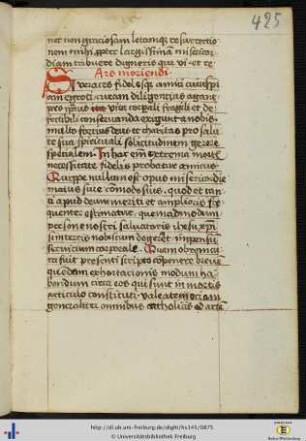 425
nem mihi propter largissimam misericor
diam tribuere digneris qui vi et re
Ars moriendi
Si veraces fidelesque amici cuiuspi
am egroti curam diligencius agant
pro eius vita corporali fragili et de
fectibili conseruanda exigunt a nobis
multo forcius deus et charitas pro salu
te sua spirituali solicitudinem gerere
specialem In hac enim extrema mortis
necessitate fidelis probatur amicus
Nempe nullum est opus misericordie
maius siue comodosius quod et tan
ti apud deum meriti et amplioris fre
quenter estimatur quemadmodum
persone nostri saluatoris ihesu xpi
si in terris nobiscum degeret impensum
seruicium corporale Quamobrem cu
ra fuit presenti scripto componere breue
quedam exhortacionis modum ha
bendum circa eos qui sunt in mortis
articulo constituti valeat etiam
generaliter omnibus catholicis ad arte
http://dl.ub.uni-freiburg.de/diglit/hs141/0875
© Universitätsbibliothek Freiburg